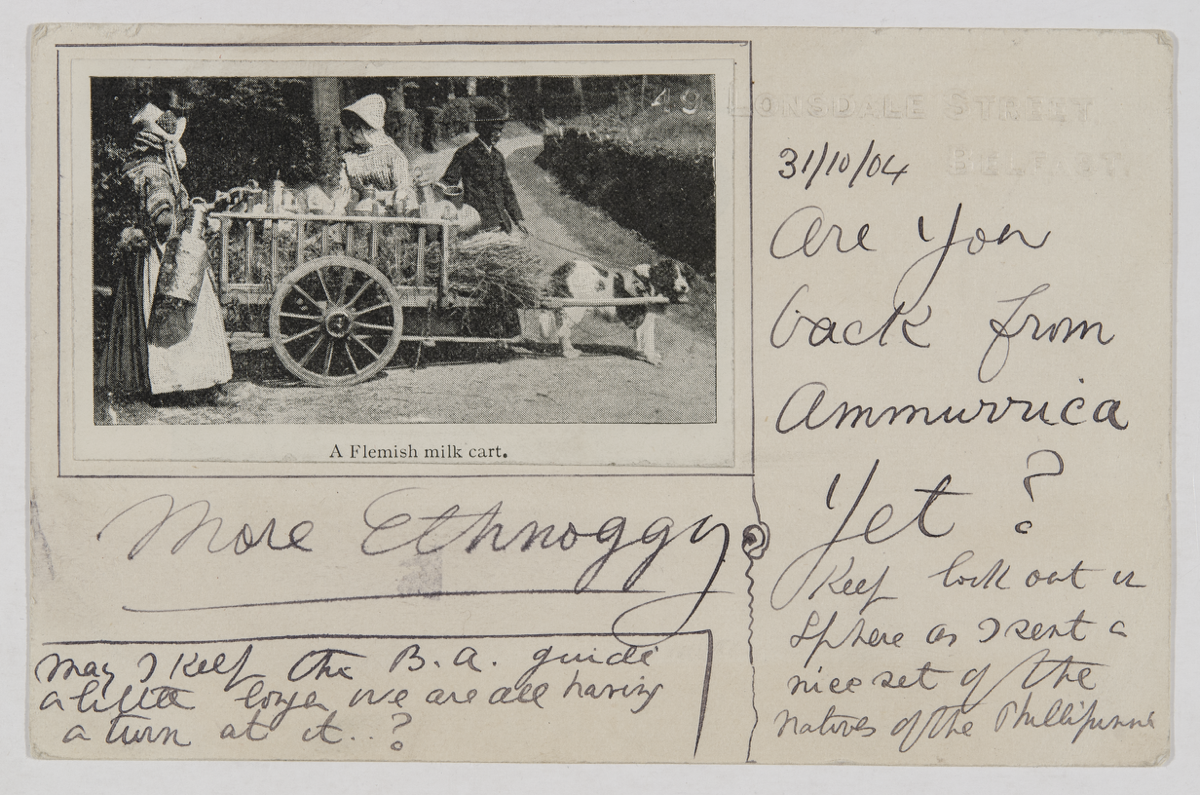 49 LONSDALE STREET
BELFAST.
31/10/04
Are you
back from
Ammurrica
Yet ?
Keep look out in
Sphere as I sent a
nice set of the
natives of the Phillipines
A Flemish milk cart.
More Ethnoggy
May I keep the B.A. guide
a little longer we are all having
a turn at it..?